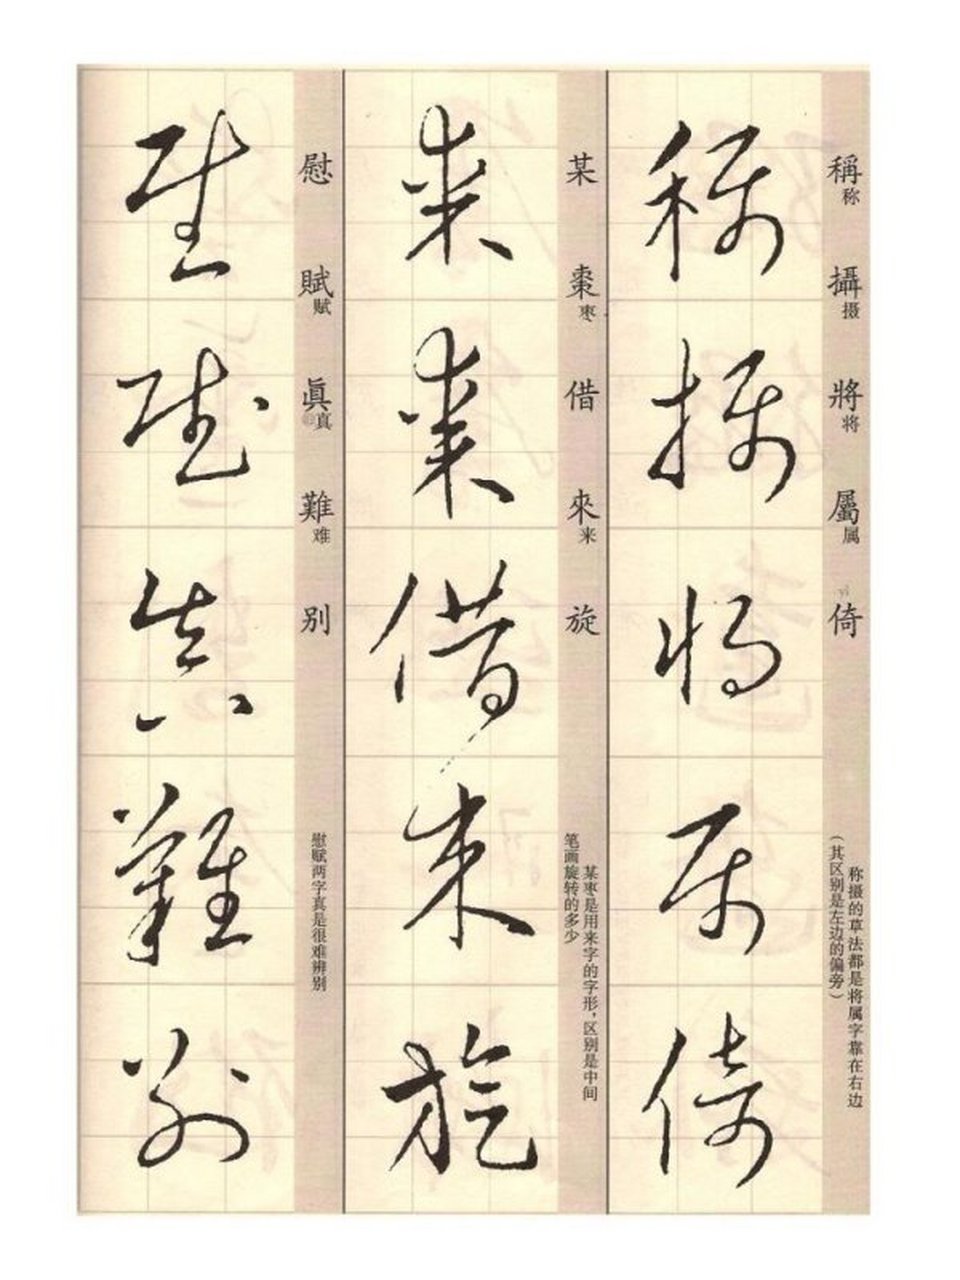 稱称 攝摄 將将 屬属 yǐ倚
称摄的草法都是将属字靠在右边
（其区别是左边的偏旁）
稱攝將屬倚
某 棗枣 借 來来 旋
某枣是用来字的字形，区别是中间
笔画旋转的多少
某棗借來旋
慰 賦赋 眞真 難难 别
慰赋两字真是很难辨别
慰賦眞難别